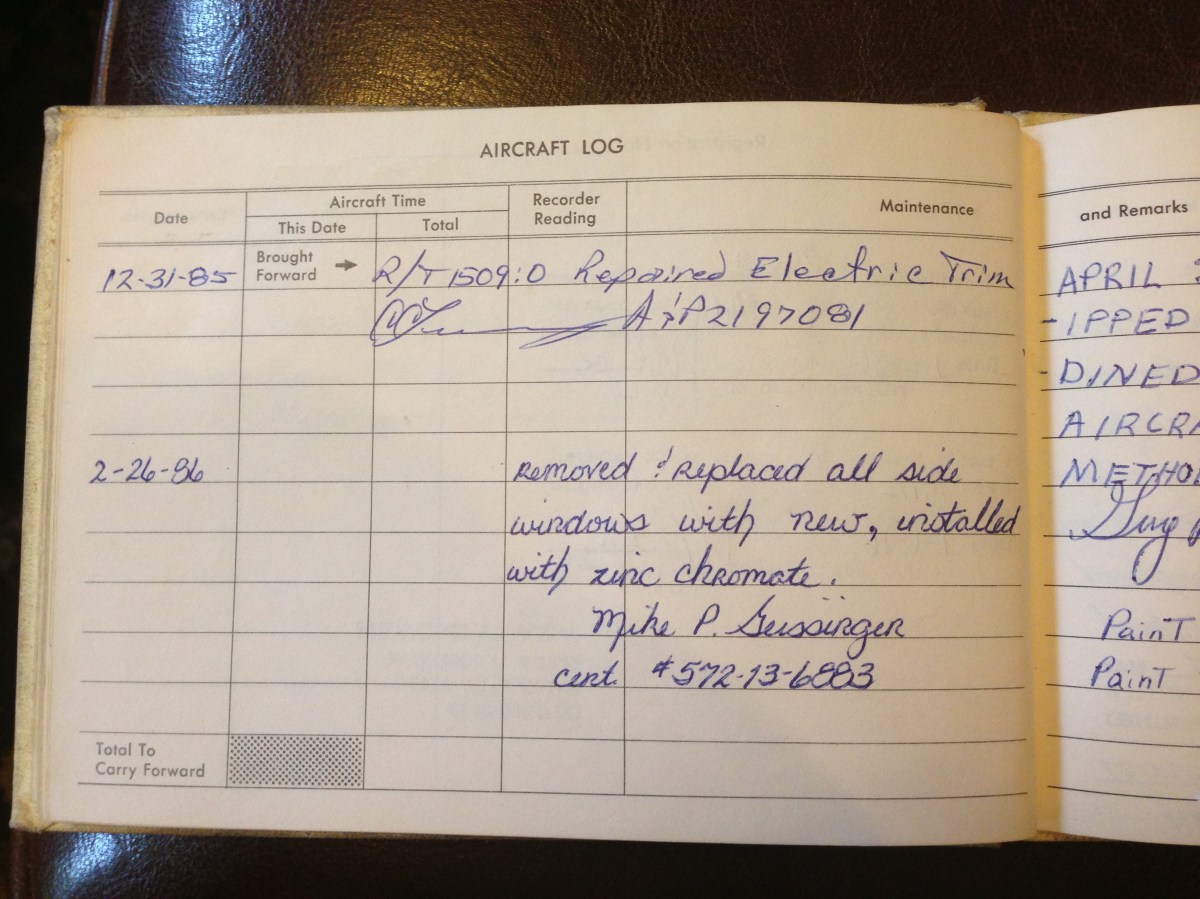 AIRCRAFT LOG
Date
Aircraft Time
This Date
Total
Recorder
Reading
Maintenance
12-31-85 Brought
Forward R/T 1509:0 Repaired Electric Trim
A & P 2197081
2-26-86 Removed & replaced all side
windows with new, installed
with zinc chromate.
Mike P. Geissinger
cert. #572-13-6883
Total To
Carry Forward
and Remarks
APRIL
-IPPED
-DINED
AIRCRA
METHO
Guy
Paint
Paint